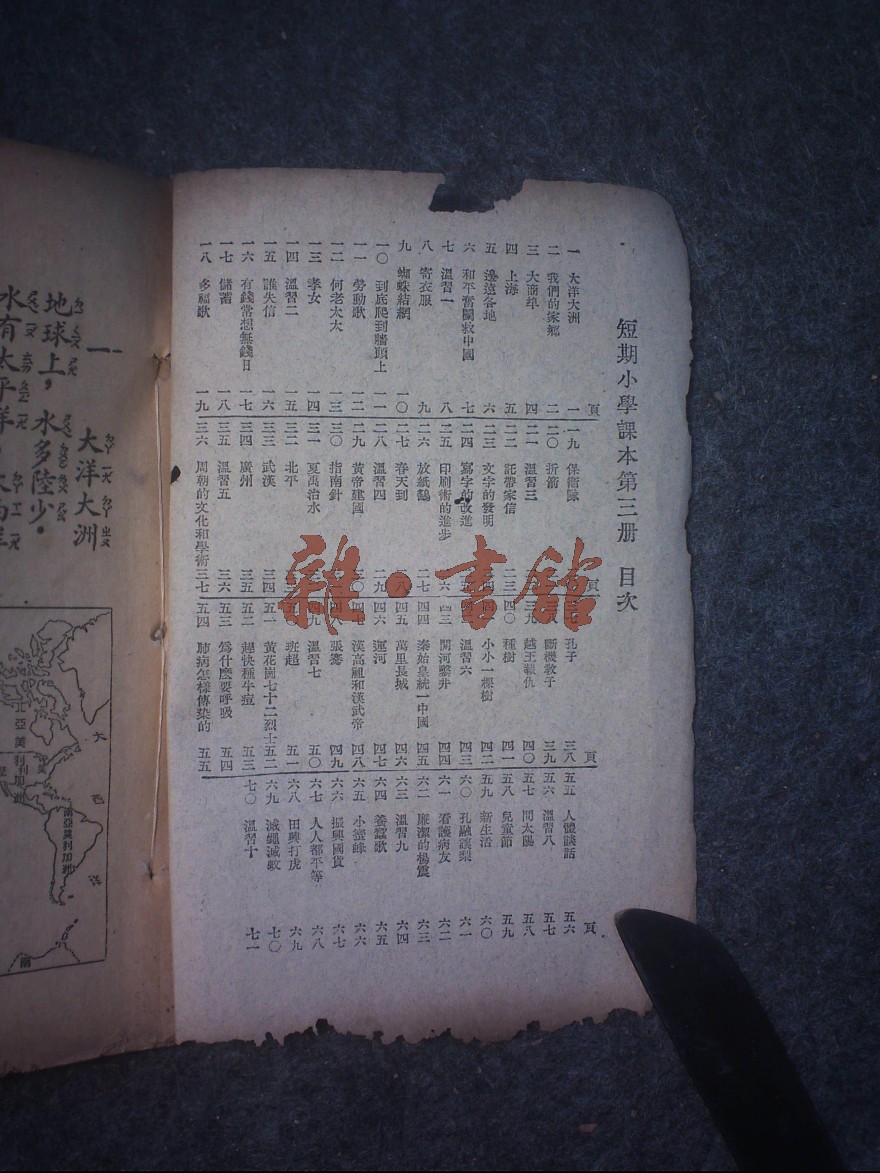 短期小學課本第三冊 目次
頁
一 大洋大洲 一
二 我們的家鄉 二
三 大商埠 四
四 上海 五
五 邊遠各地 六
六 和平奮鬬救中國 七
七 溫習一 八
八 寄衣服 九
九 蜘蛛結網 一〇
一〇 到底爬到牆頭上 一一
一一 勞動歌 一二
一二 何老太太 一三
一三 孝女 一四
一四 溫習二 一五
一五 誰失信 一六
一六 有錢當想無錢日 一七
一七 儲蓄 一八
一八 多福歌 一九
頁
一九 保衛隊
二〇 折箭
二一 溫習三
二二 託帶家信 二三
二三 文字的發明
二四 寫字的改進
二五 印刷術的進步 二六
二六 放紙鷂 二七
二七 春天到 二八
二八 溫習四 二九
二九 黃帝建國
三〇 指南針
三一 夏禹治水
三二 北平
三三 武漢 三四
三四 廣州 三五
三五 溫習五 三六
三六 周朝的文化和學術 三七
頁
孔子 三八
斷機教子 三九
三九 越王報仇 四〇
四〇 種樹 四一
小小一棵樹 四二
溫習六 四三
四三 開河鑿井 四四
四四 秦始皇統一中國 四五
四五 萬里長城 四六
四六 運河 四七
漢高祖和漢武帝 四八
張騫 四九
四九 溫習七 五〇
班超 五一
五一 黃花崗七十二烈士 五二
五二 趕快種牛痘 五三
五三 爲什麽要呼吸 五四
五四 肺病怎樣傳染的 五五
頁
五五 人體談話 五六
五六 溫習八 五七
五七 問太陽 五八
五八 兒童節 五九
五九 新生活 六〇
六〇 孔融讓梨 六一
六一 看護病友 六二
六二 廉潔的楊震 六三
六三 溫習九 六四
六四 養蠶歌 六五
六五 小蜜蜂 六六
六六 振興國貨 六七
六七 人人都平等 六八
六八 田興打虎 六九
六九 滅蠅滅蚊 七〇
七〇 溫習十 七一
雜·書館
一 大洋大洲
地球上，水多陸少。
水有太平洋
大
西
洋
北亞美利加洲
南亞美利加洲
南